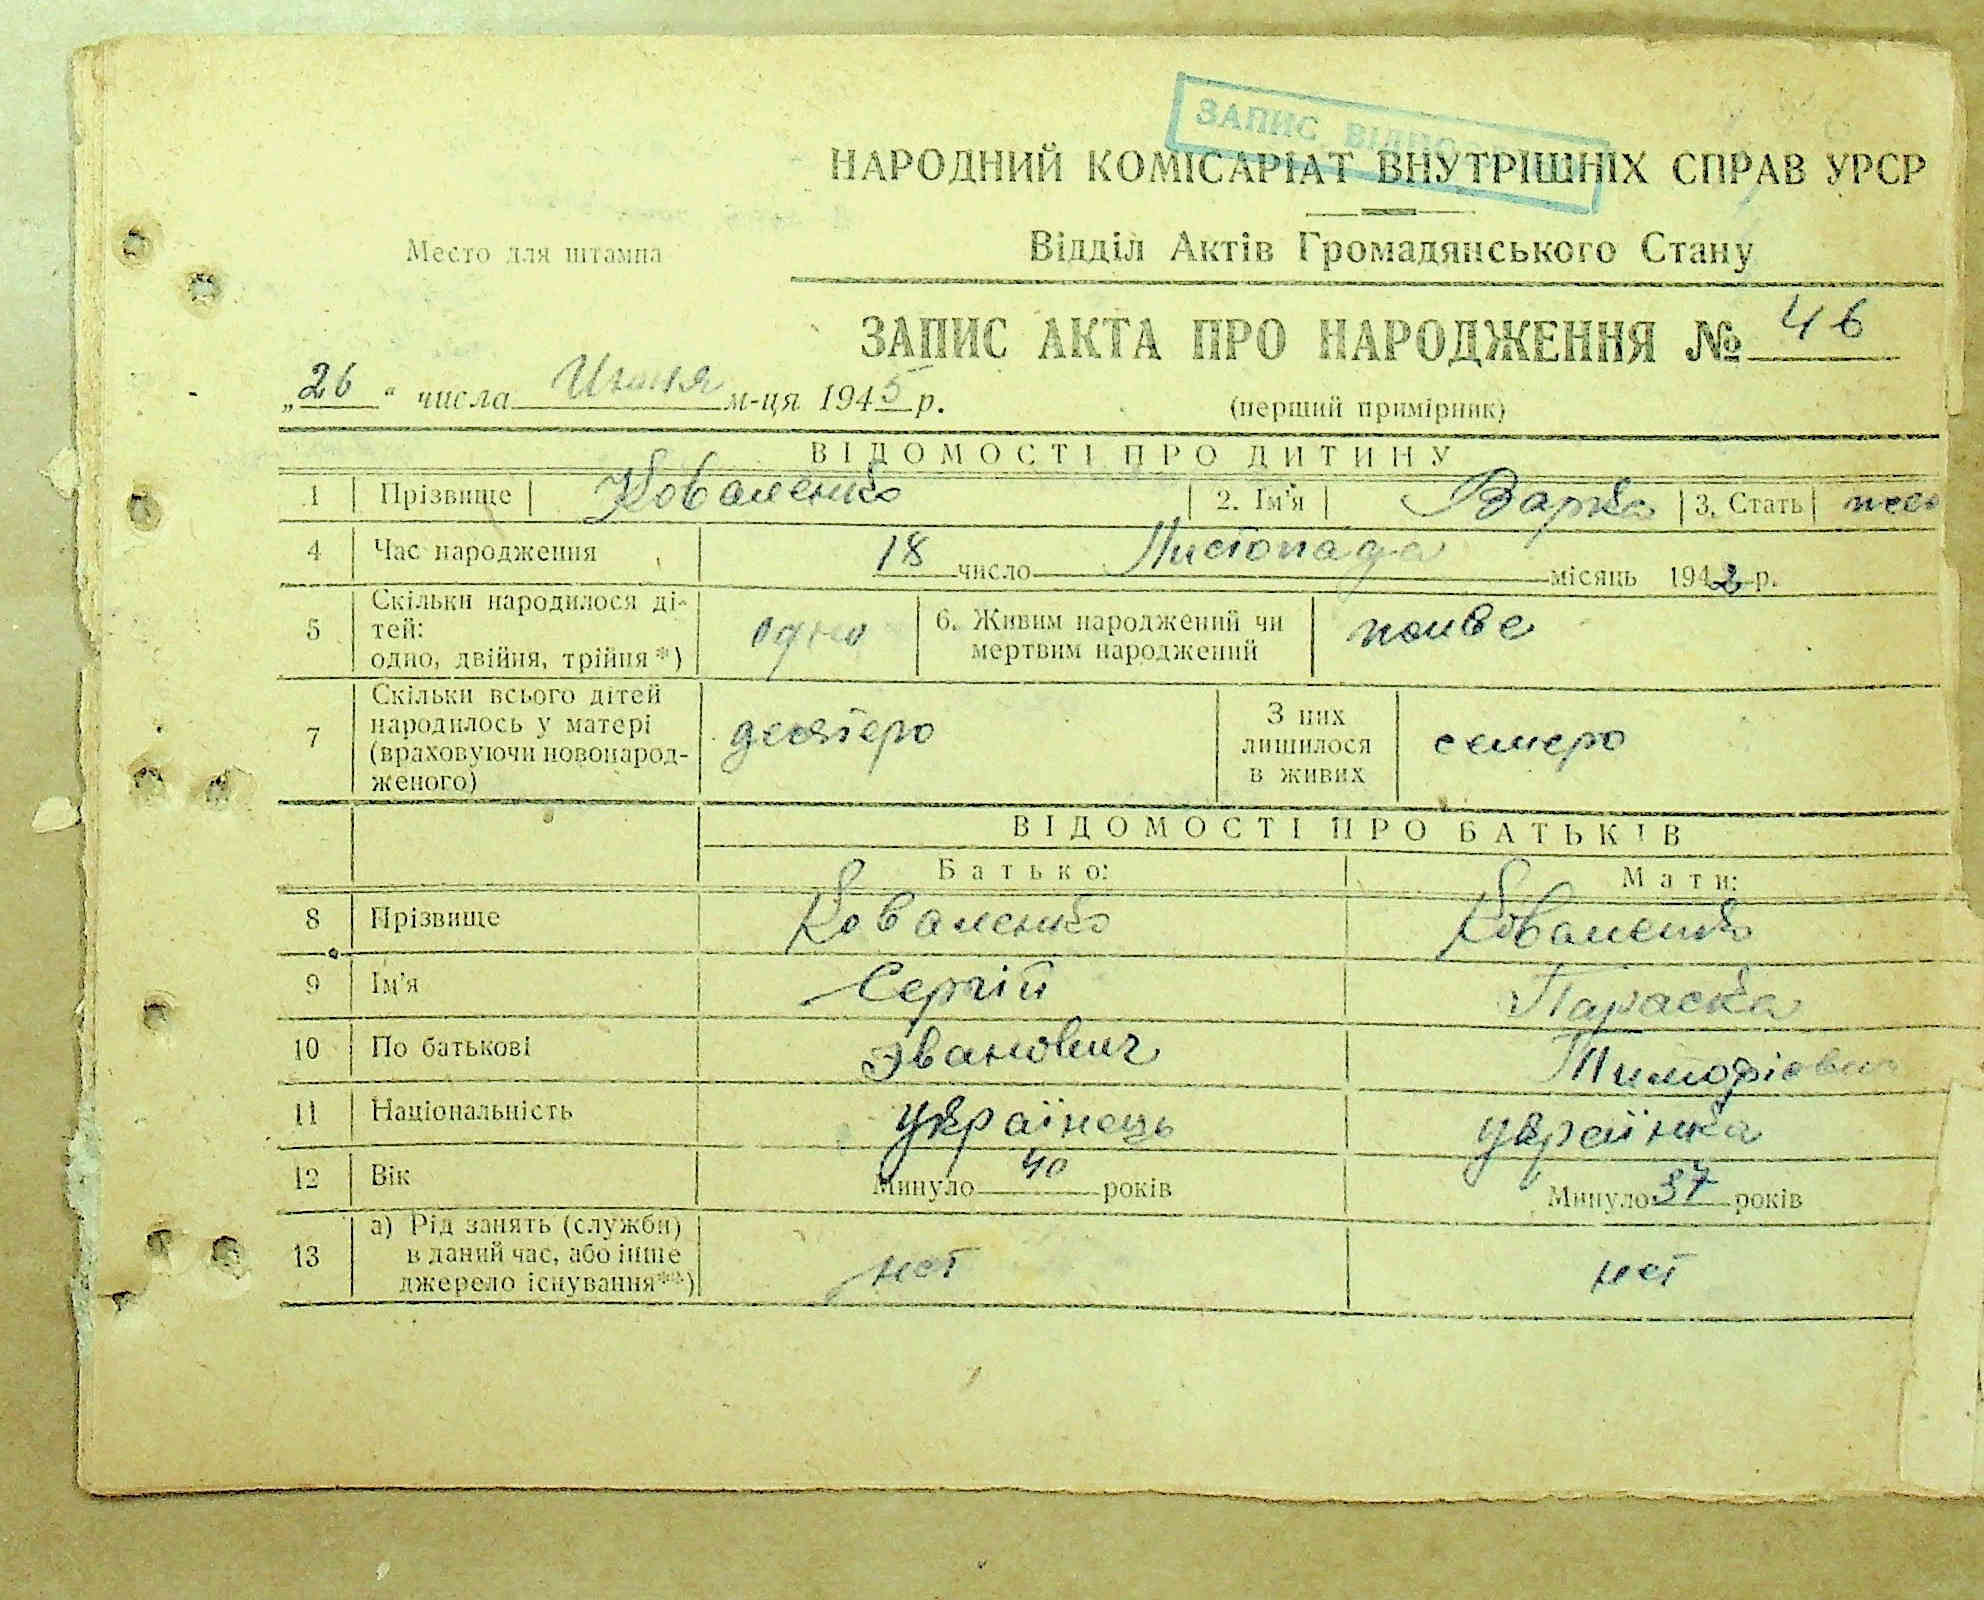 ЗАПИС ВІДНО
НАРОДНИЙ КОМІСАРІАТ ВНУТРІШНІХ СПРАВ УРСР
Место для штампа
Відділ Актів Громадянського Стану
ЗАПИС АКТА ПРО НАРОДЖЕННЯ № 46
„26" числа Июня м-ця 1945 р.
(перший примірник)
ВІДОМОСТІ ПРО ДИТИНУ
1 Прізвище Коваленко 2. Ім'я Варка 3. Стать жен
4 Час народження 18 число Листопада місяць 1942 р.
5 Скільки народилося ді-
тей:
одно, двійня, трійня*) одно 6. Живим народжений чи
мертвим народжений живе
7 Скільки всього дітей
народилось у матері
(враховуючи новонарод-
женого) десятеро З них
лишилося
в живих семеро
ВІДОМОСТІ ПРО БАТЬКІВ
Батько: Мати:
8 Прізвище Коваленко Коваленко
9 Ім'я Сергій Параска
10 По батькові Іванович Тимофієвна
11 Національність українець українка
12 Вік Минуло 40 років Минуло 37 років
13 а) Рід занять (служби)
в даний час, або інше
джерело існування**) нет нет